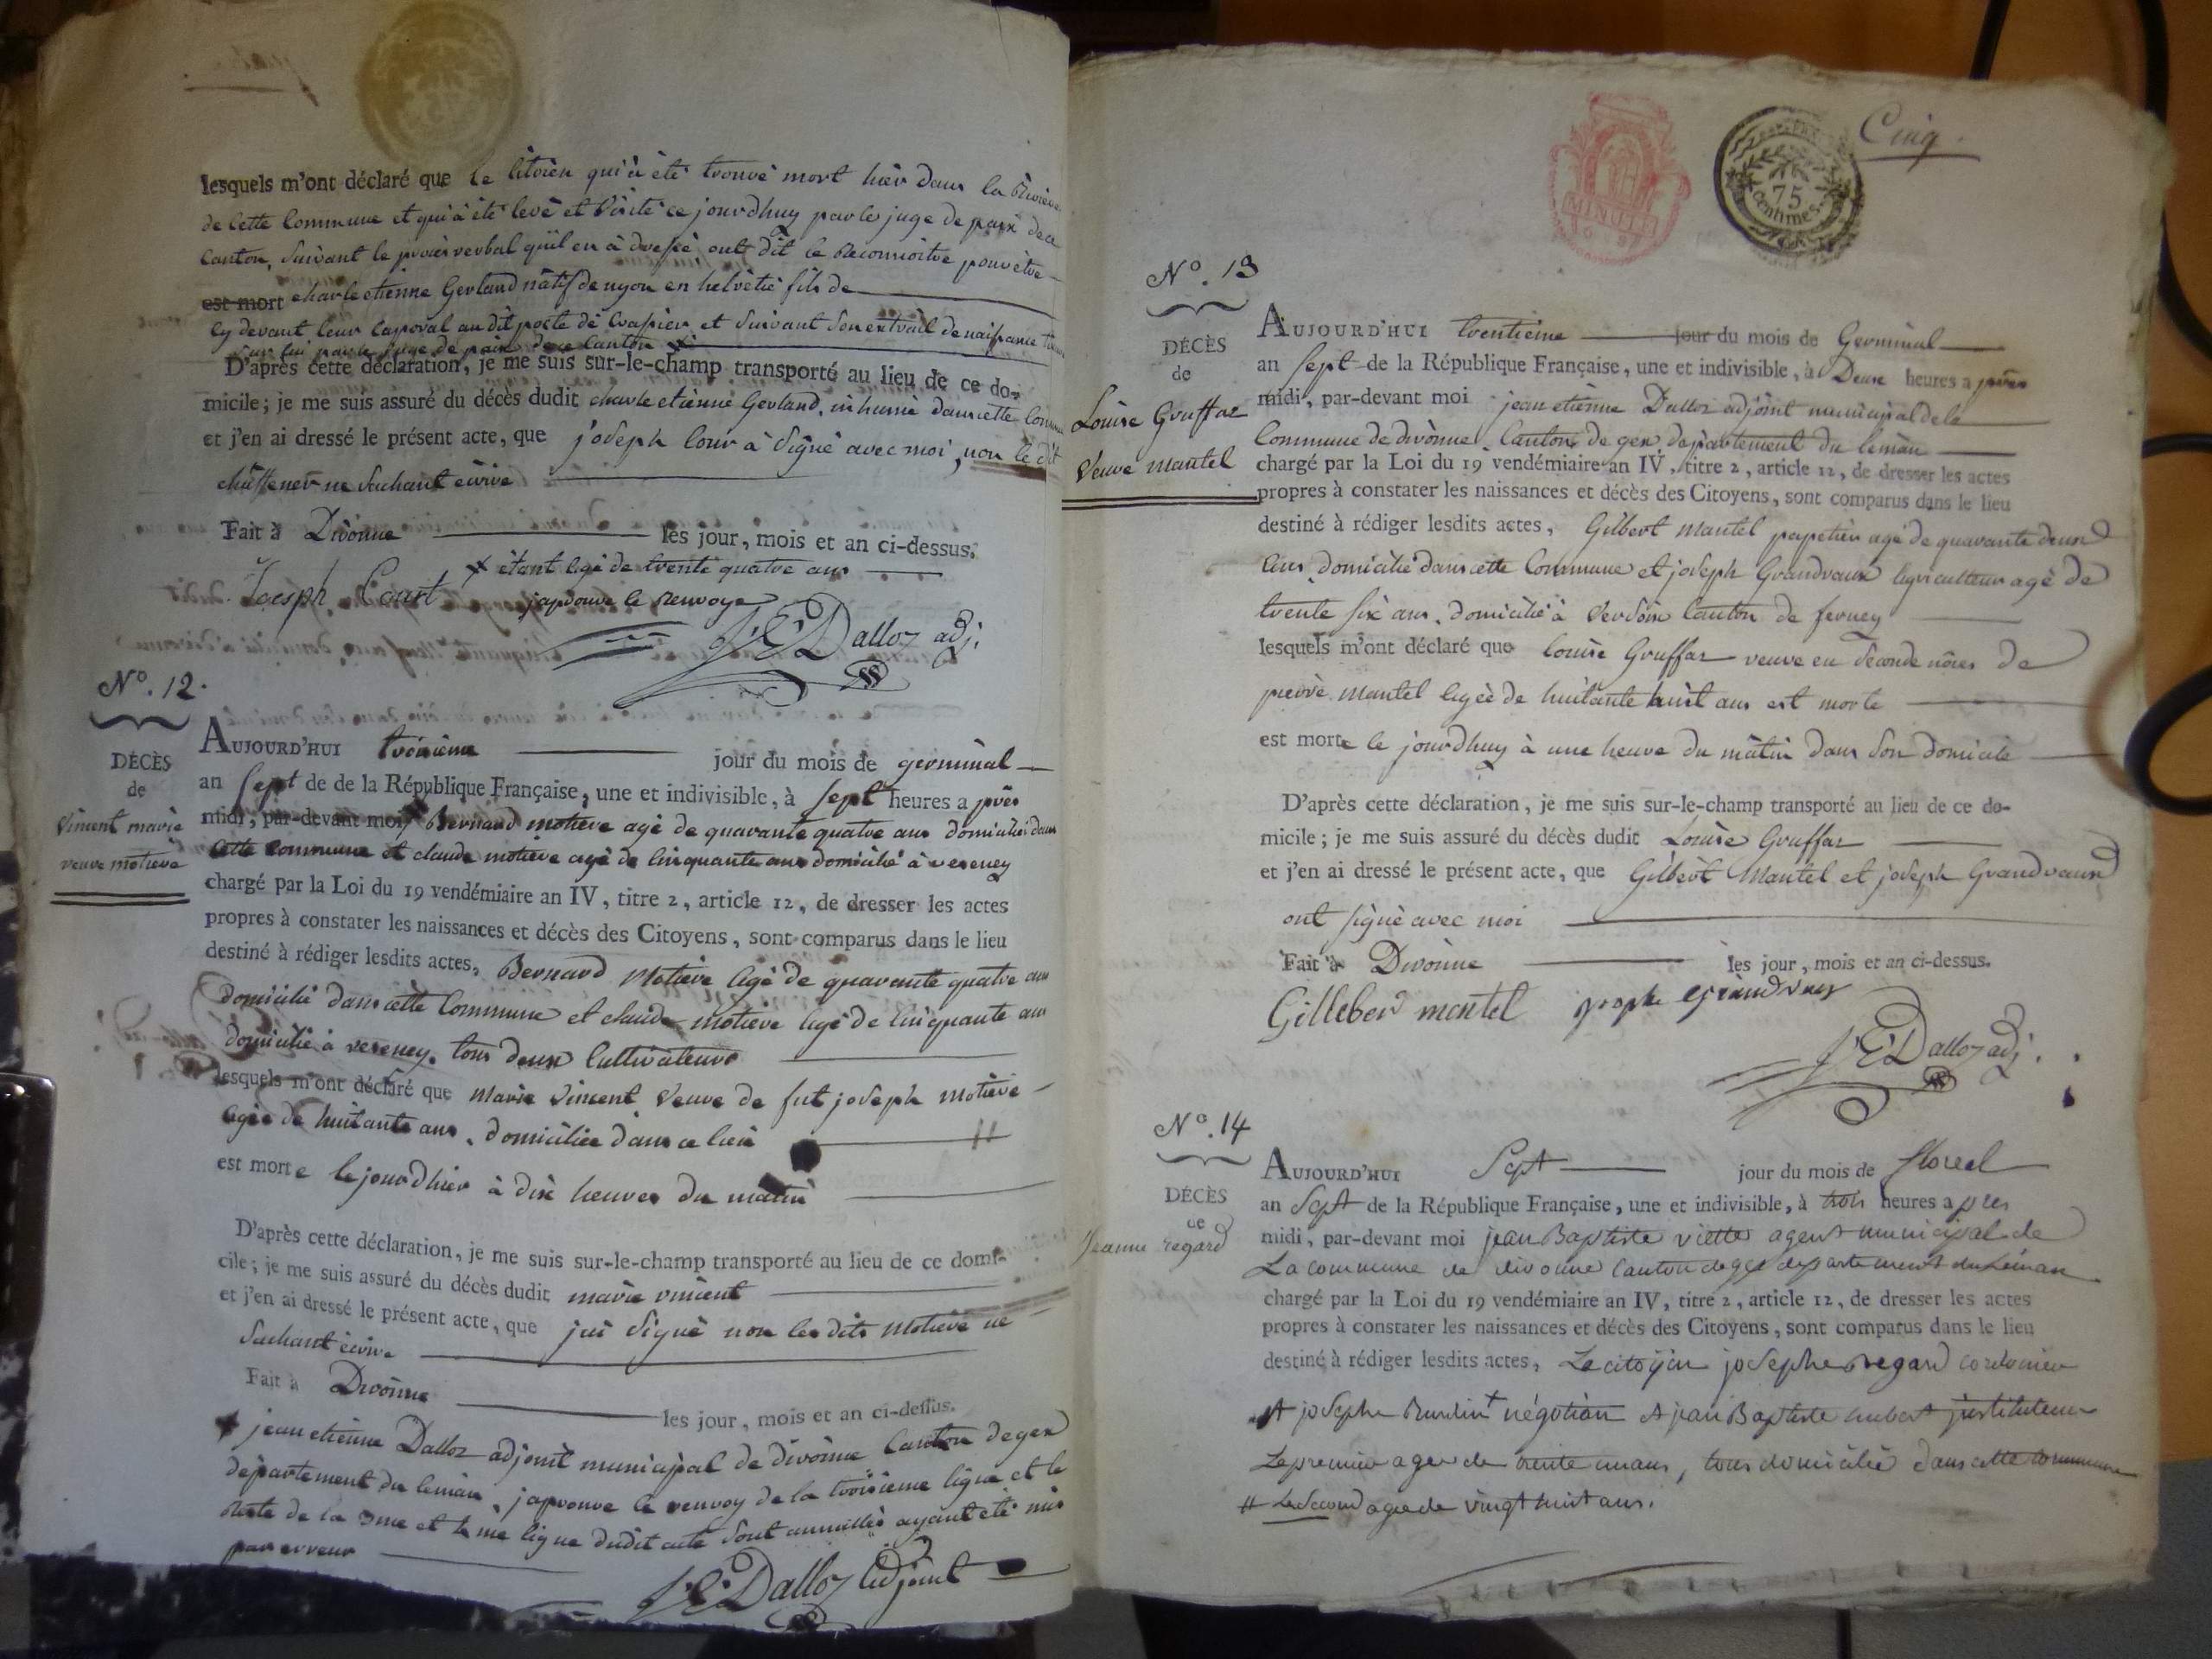 lesquels m'ont déclaré que le citoien qui à été trouvé mort hier dans la Rivière
de cette Commune et qui à été levé et Visité ce jourdhuy par le juge de paix de ce
Canton, Suivant le procès verbal qu'il en à dressé ont dit le Reconnoitre pour être
est mort charle etienne Gerland nâtif de nyon en helvétie fils de
Cy devant leur Caporal au dit poste de Crassier et Suivant Son extrait de naissance
Sur lui par le juge de paix de ce Canton
D'après cette déclaration, je me suis sur-le-champ transporté au lieu de ce do-
micile; je me suis assuré du décès dudit charle etienne Gerland, inhumé dans cette Commune
et j'en ai dressé le présent acte, que joseph Cour à Signé avec moi, non le dit
ne Sachant écrire
Fait à Divonne les jour, mois et an ci-dessus.
x étant agé de trente quatre ans
Joesph Court japrouve le Renvoye
J E Dalloz adj.
N.º 12.
DÉCÈS
de
Vincent marie
veuve motiere
AUJOURD'HUI troisième jour du mois de germinal
an Sept de de la République Française, une et indivisible, à Sept heures a près
midi, par-devant moi, Bernard motiere agé de quarante quatre ans domicilié dans
cette commune et claude motiere agé de cinquante ans domicilié à veseney
chargé par la Loi du 19 vendémiaire an IV, titre 2, article 12, de dresser les actes
propres à constater les naissances et décès des Citoyens, sont comparus dans le lieu
destiné à rédiger lesdits actes, Bernard Motiere agé de quarante quatre ans
domicilié dans cette Commune et claude motiere agé de cinquante ans
domicilié à veseney. tous deux Cultivateurs
lesquels m'ont déclaré que marie Vincent Veuve de fut joseph motiere
agée de huitante ans, domiciliée dans ce lieu
est morte le jourdhier à dix heures du matin
D'après cette déclaration, je me suis sur-le-champ transporté au lieu de ce domi-
cile; je me suis assuré du décès dudit marie vincent
et j'en ai dressé le présent acte, que jai Signé non les dits Motiere ne
Sachant écrire
Fait à Divonne les jour, mois et an ci-dessus.
x jean etienne Dalloz adjoint municipal de divonne Canton de gex
département du leman, japrouve le renvoy de la troisieme ligne et le
Reste de la 3me et 4me ligne dudit acte Sont annullés ayant été mis
par erreur
J E Dalloz adjoint
Cinq.
MINUTE
75
centimes.
N.º 13
DÉCÈS
de
Louise Gruffaz
Veuve Mantel
AUJOURD'HUI trentieme jour du mois de Germinal
an Sept de la République Française, une et indivisible, à Deux heures a près
midi, par-devant moi jean etienne Dalloz adjoint municipal de la
Commune de divonne Canton de gex département du leman
chargé par la Loi du 19 vendémiaire an IV, titre 2, article 12, de dresser les actes
propres à constater les naissances et décès des Citoyens, sont comparus dans le lieu
destiné à rédiger lesdits actes, Gilbert mantel papetier agé de quarante deux
ans, domicilié dans cette Commune et joseph Grandvaux agriculteur agé de
trente six ans, domicilié à Versoix Canton de ferney
lesquels m'ont déclaré que Louise Gruffaz veuve en Seconde nôces de
pierre mantel agée de huitante huit ans est morte
est morte le jourdhuy à une heure du matin dans Son domicile
D'après cette déclaration, je me suis sur-le-champ transporté au lieu de ce do-
micile; je me suis assuré du décès dudit Louise Gruffaz
et j'en ai dressé le présent acte, que Gilbert Mantel et joseph Grandvaux
ont signé avec moi
Fait à Divonne les jour, mois et an ci-dessus.
Gilleber mentel
J E Dalloz adj.
N.º 14
DÉCÈS
de
Jeanne regard
AUJOURD'HUI Sept jour du mois de floreal
an Sept de la République Française, une et indivisible, à trois heures a pres
midi, par-devant moi jean Baptiste viette agent municipal de
La commune de divonne Canton de gex departement du Léman
chargé par la Loi du 19 vendémiaire an IV, titre 2, article 12, de dresser les actes
propres à constater les naissances et décès des Citoyens, sont comparus dans le lieu
destiné à rédiger lesdits actes, Le citoÿen josephe regard cordonier
et josephe Burdin négotian et jean Baptiste hubert justituteur
Le premier agee de trente un ans, tous domicilié dans cette commune
# Le Second agee de vingt huit ans.